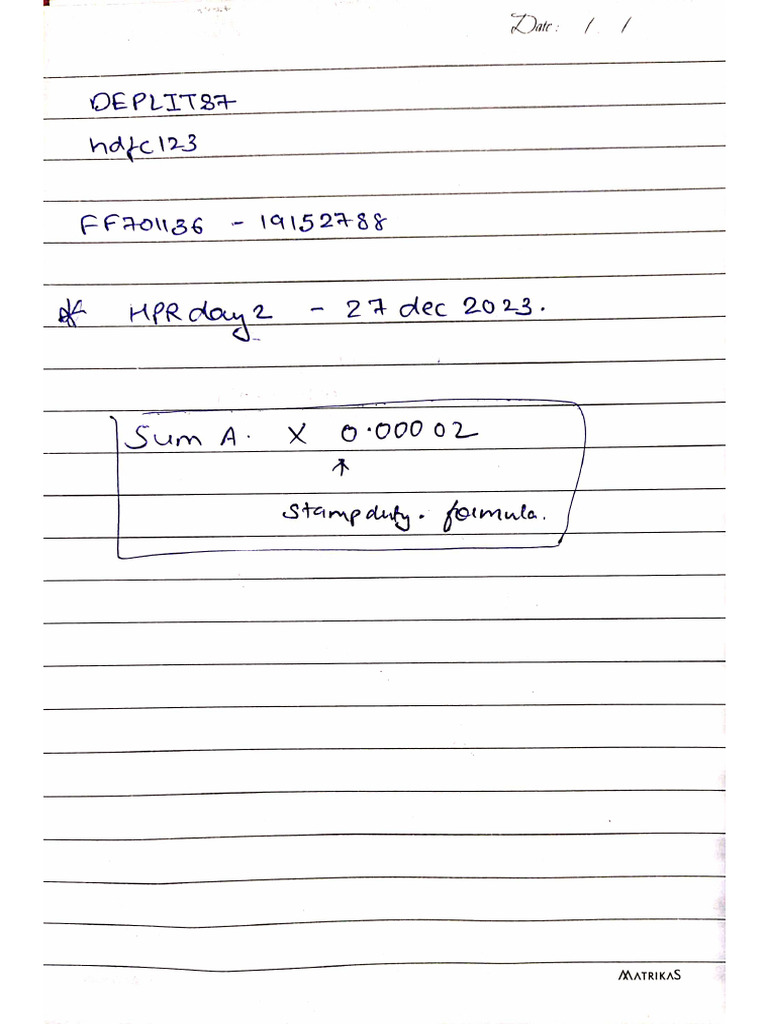 Date: / /
DEPLIT87
hdfc123
FF701136 - 19152788
* HPR day 2 - 27 dec 2023.
Sum A. X 0.00002
↑
Stampduty. formula.
MATRIKAS